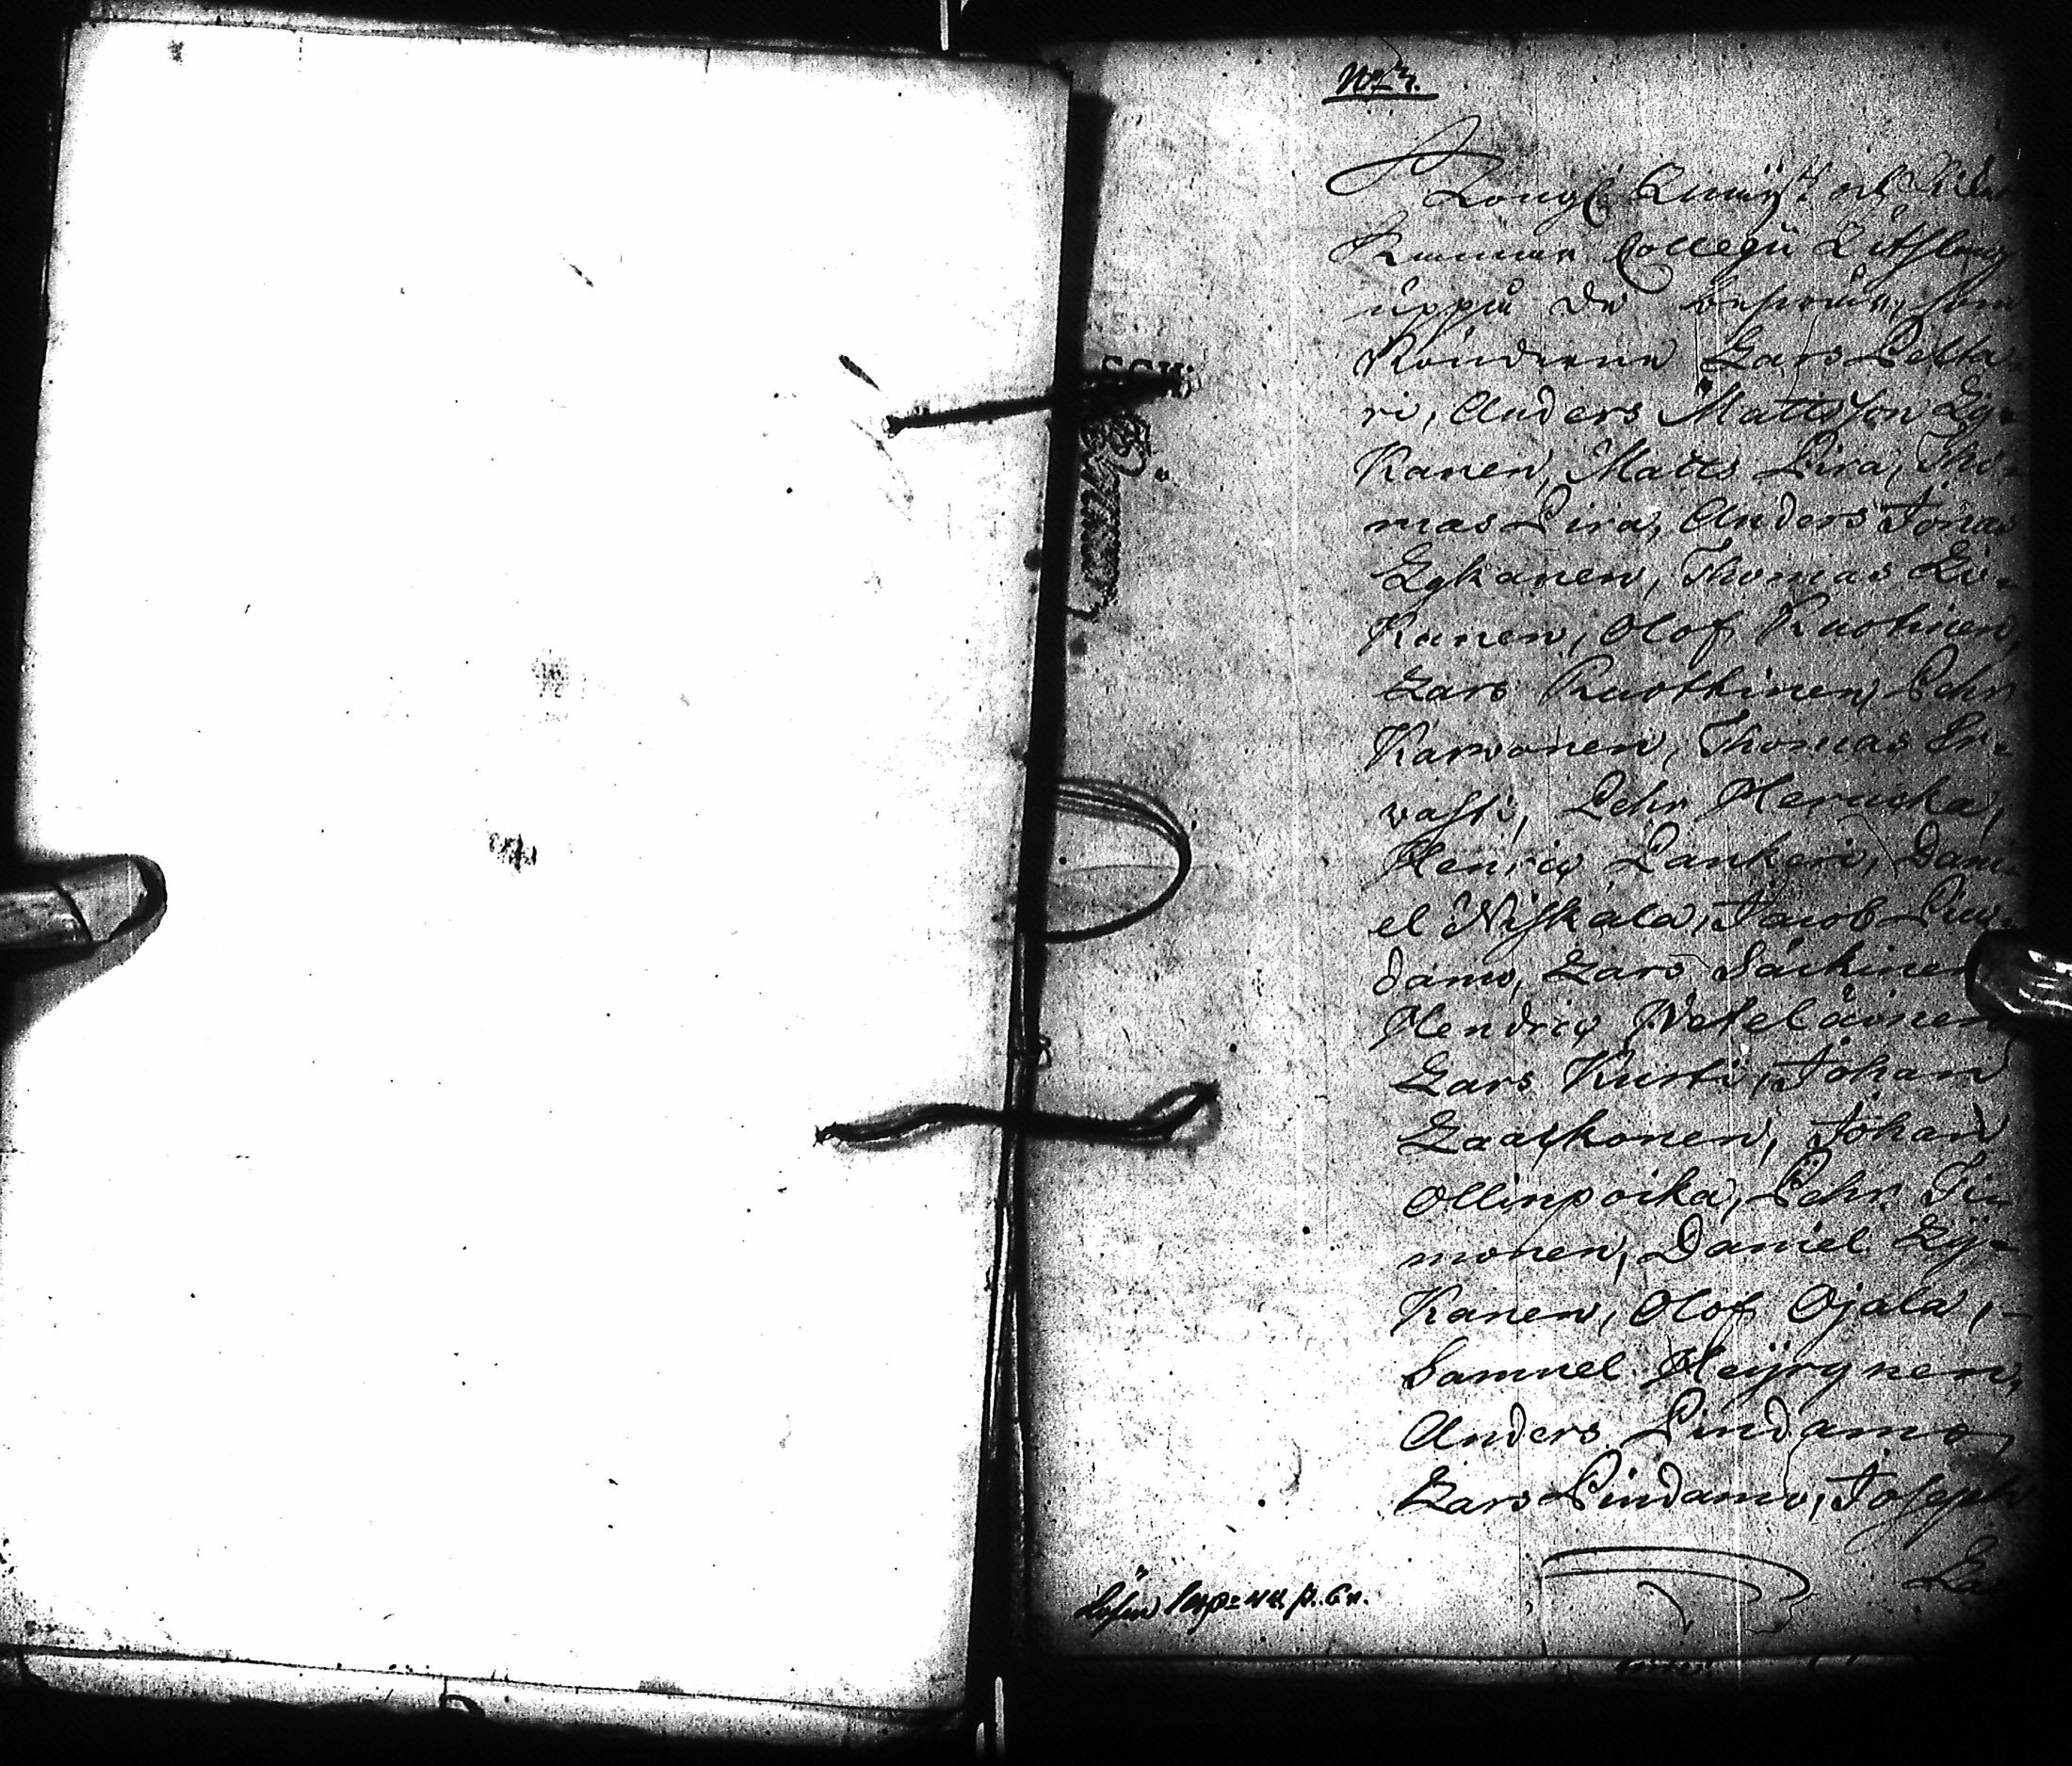 Kongl Krigs och
Kammar Collegii Utslag
uppå de besvär, som
Bönderne Lars Pelta-
ri, Anders Mattsson Ly-
kanen, Matts Pira, Tho-
mas Pira, Anders Jönas
Lykanen, Thomas Ly-
kanen, Olof Ruotinen,
Lars Ruottinen, Pehr
Karvonen, Thomas Er-
vasti, Pehr Heraska,
Henric Pankeri, Dani-
el Niskala, Jacob Pin-
damo, Lars Säckinen
Hendric Weteläinen
Lars Kurti, Johan
Laackonen, Johan
Ollinpoika, Pehr Ti-
monen, Daniel Ly-
kanen, Olof Ojala,
Samuel Heyrynen,
Anders Pindamo,
Lars Pindamo, Joseph
La